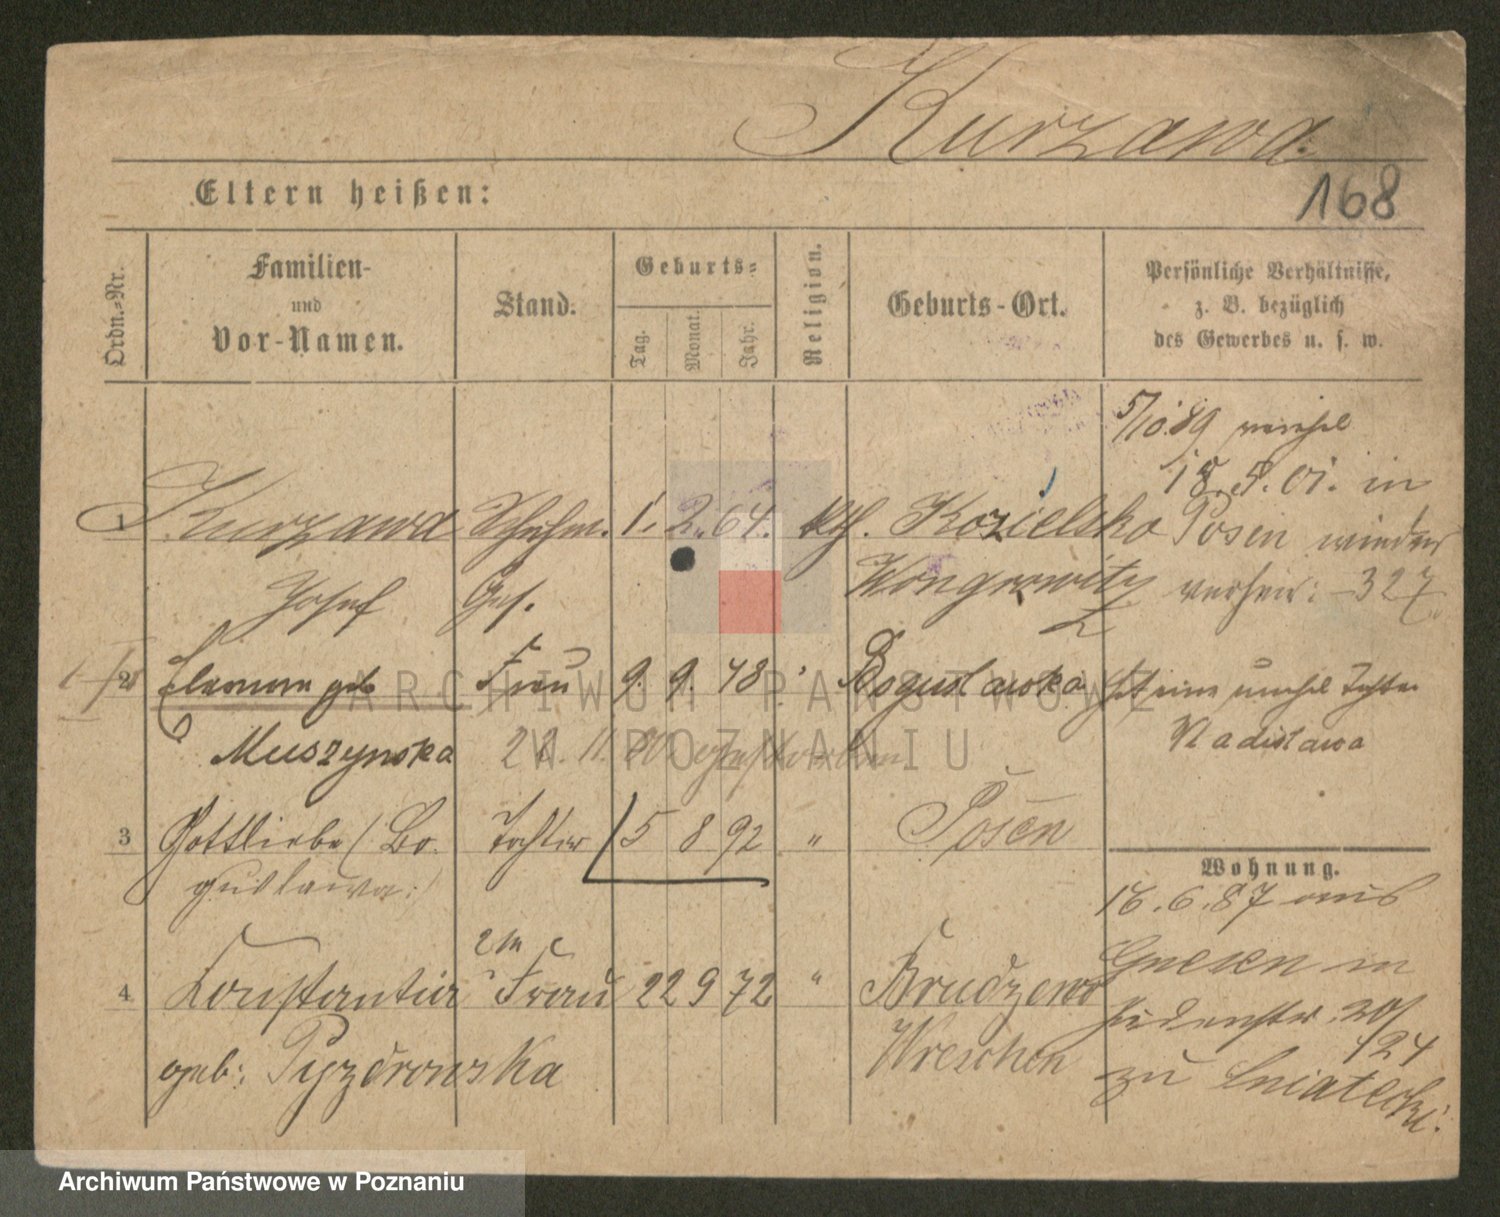 Kurzawa.
168
Eltern heißen:
Ordn.-Nr.
Familien-
und
Vor-Namen.
Stand.
Geburts-
Tag.
Monat.
Jahr.
Religion.
Geburts-Ort.
Persönliche Verhältnisse,
z. B. bezüglich
des Gewerbes u. s. w.
5/10.89
18.5.01. in
1 Kurzawa Schuhm. 1. 2. 64. kth. Kozielsko Posen wieder
Josef Ges. Wongrowitz verheir: 327
2 geb Frau 9. 9. 48 Boguslawska
Muszynska 11. 80 gestorben Wladislawa
3 Gottliebe (Bo- Tochter 5 8 92 " Posen
guslawa:)
Wohnung.
18.6.87 aus
Gnesen in
2te
4 Konstantia Frau 22 9 72 " Brudzewo
Judenstr. 30/
124
geb: Pyzdrowska Wreschen
zu Sniatecki.
ARCHIWUM PAŃSTWOWE
W POZNANIU
Archiwum Państwowe w Poznaniu